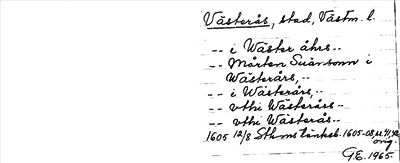 Västerås, stad, Västm. l.
-- i Wäster åhrs --
-- Mårten Suänsonn i
Wästerårs, --
-- i Wästerårs, --
-- vthi Wästerårs --
-- vthi Wästerås --
1605 12/8 Sthms tänkeb. 1605-08,
orig.
G.E. 1965.